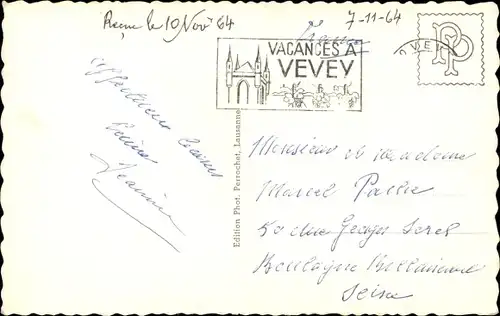 Reçu le 10 Nov 64
7-11-64
France
VACANCES À
VEVEY
VEVEY
PP
Affectueux baisers
Jeannine
Edition Phot. Perrochet, Lausanne
Monsieur et Madame
Marcel
50 Rue Georges Sorel
Boulogne Billancourt
Seine